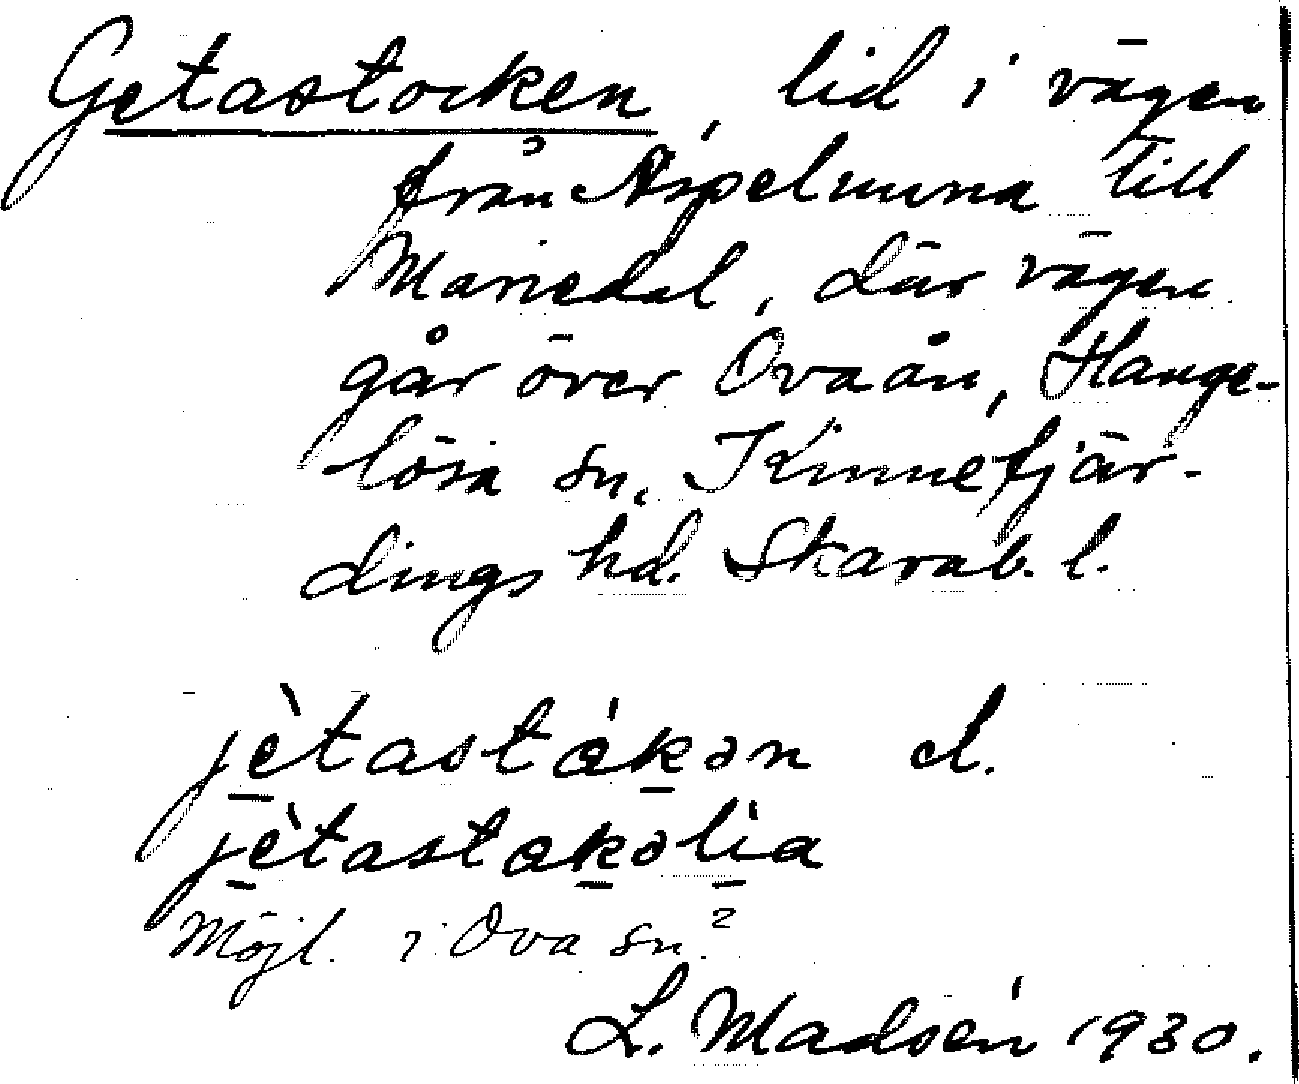 Getastocken, lid i vägen
från Aspelunna till
Mariedal, där vägen
går över Ovaån, Hange-
lösa sn, Kinnefjär-
dings hd. Skarab. l.
jètastákən el.
jètastakəlìa
Möjl. i Ova sn?
L. Madsén 1930.